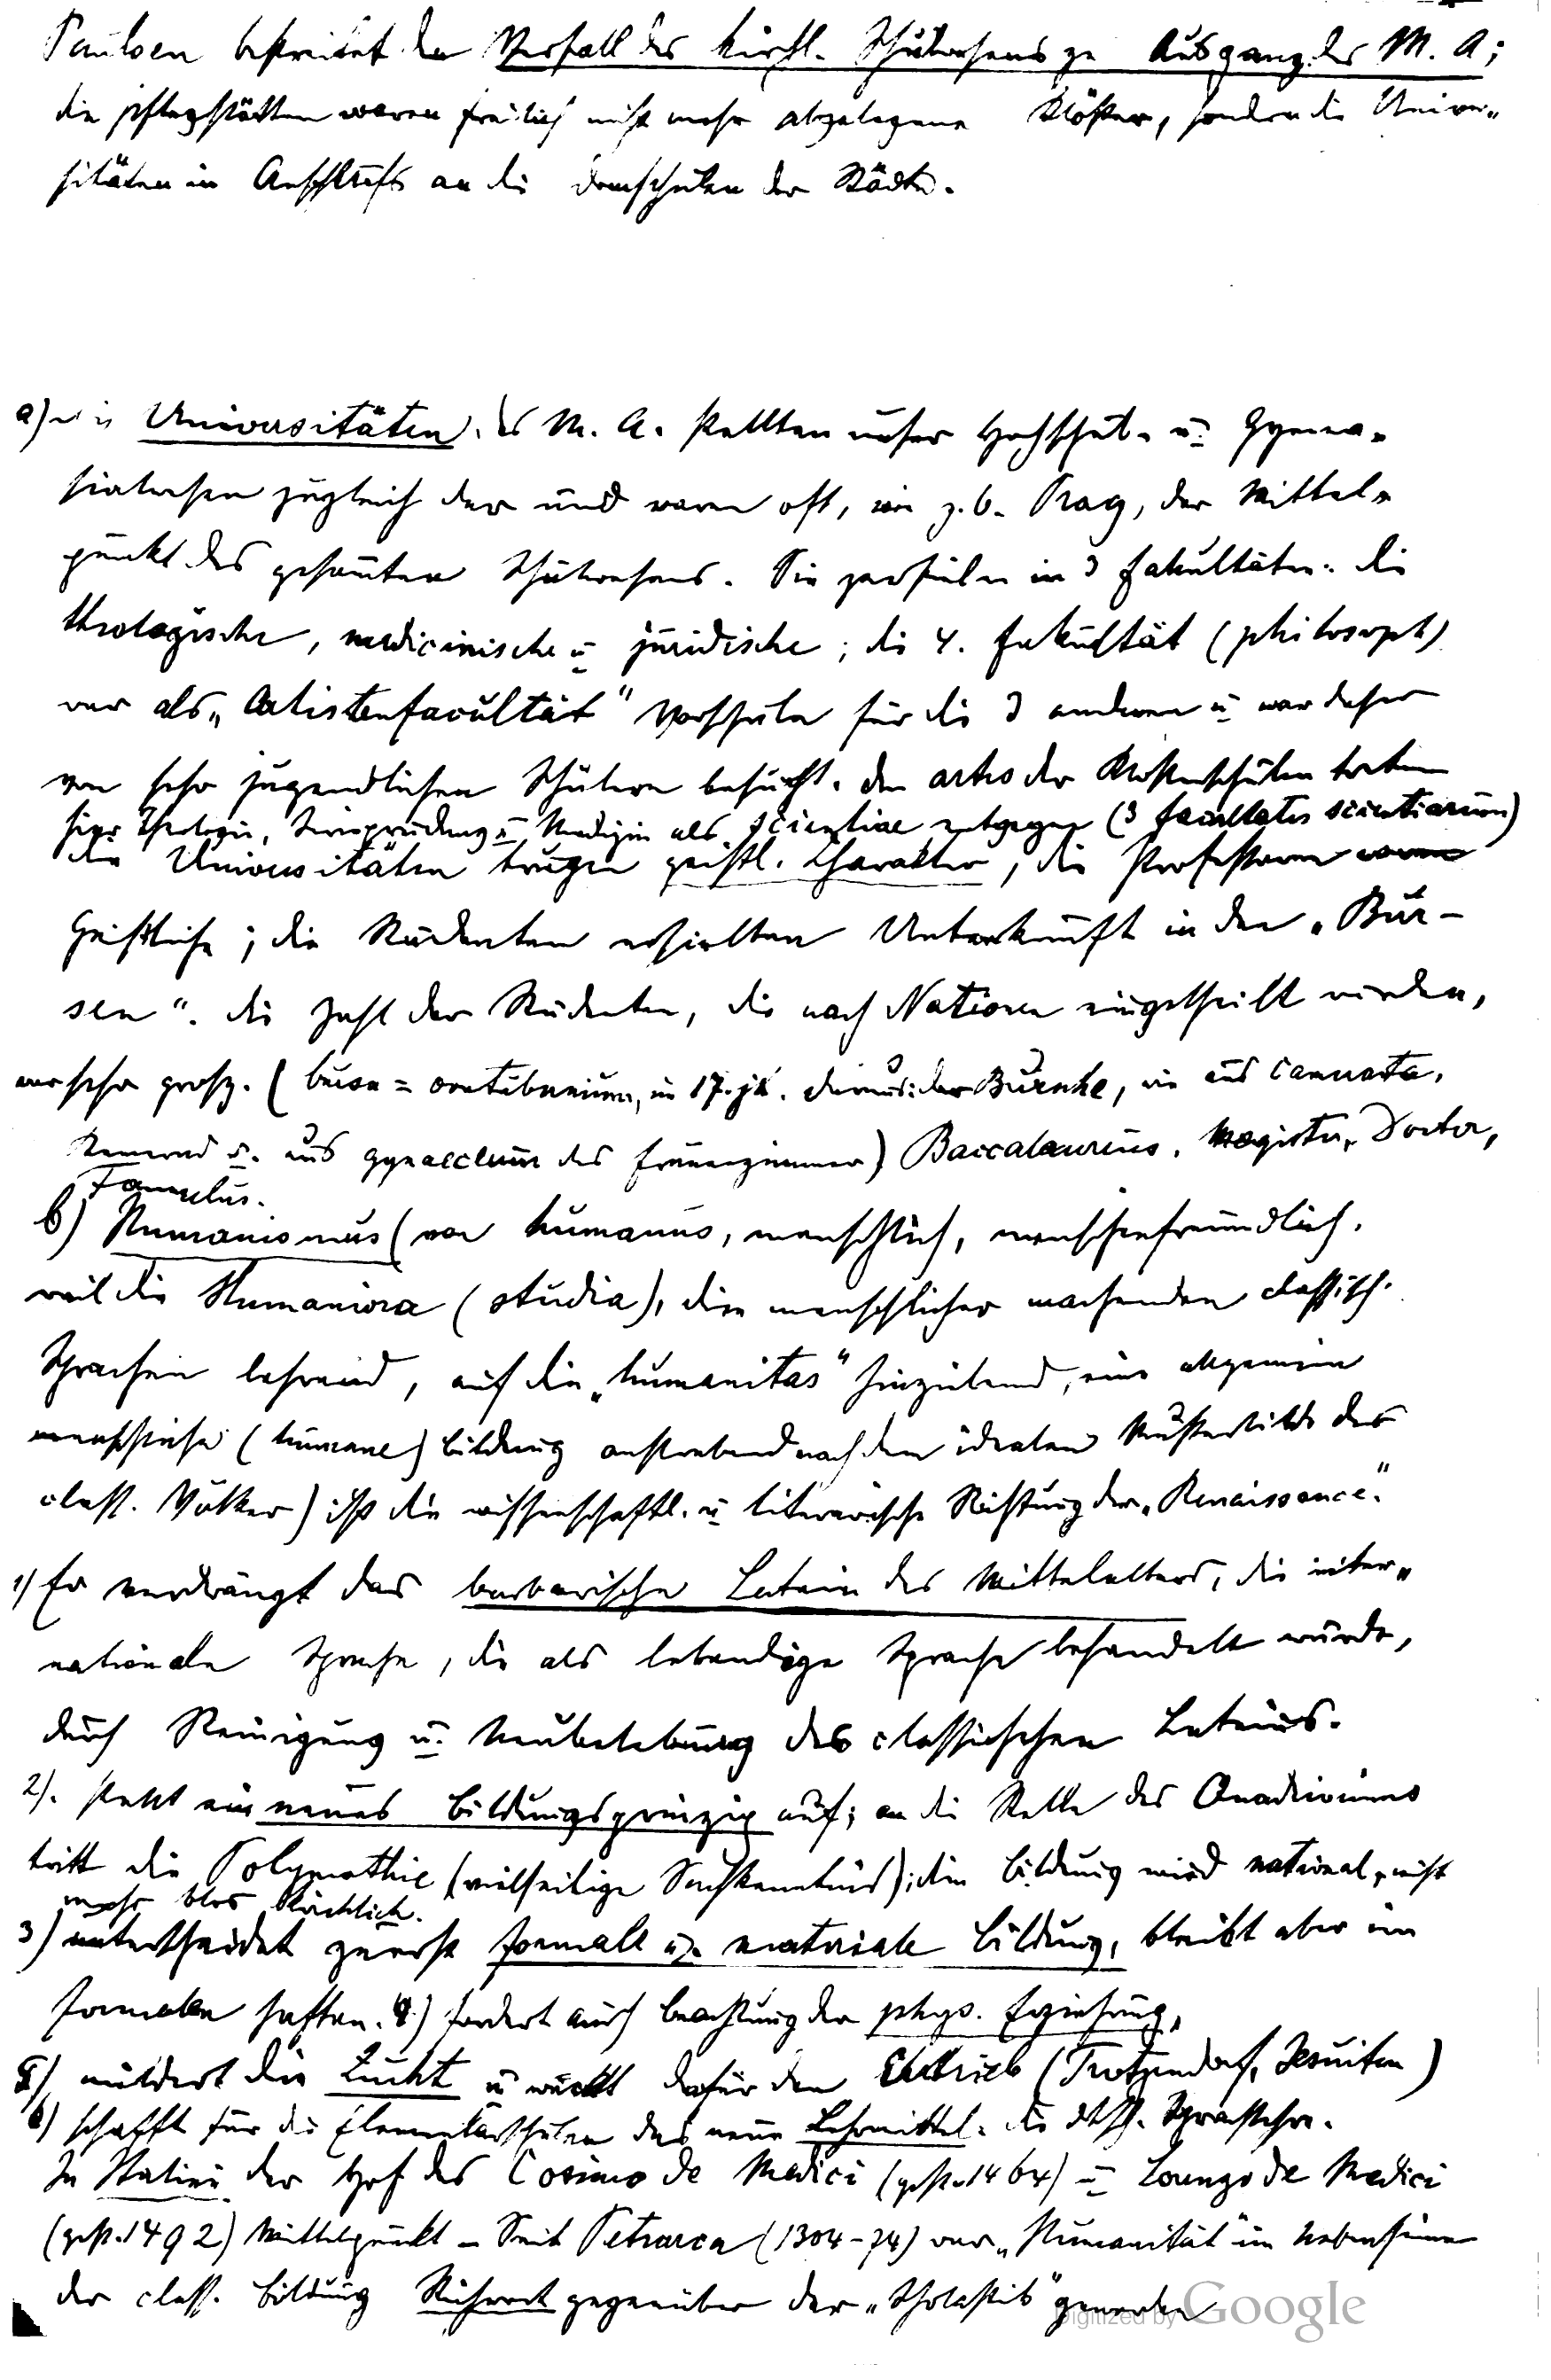 Paulsen bestreitet den Verfall des kirchl. Schulwesens zu Ausgang des M. A;
die Pflegstätten waren freilich nicht mehr abgelegene Klöster, sondern die Univer-
sitäten im Anschluss an die Domschulen der Städte.
a) die Universitäten des M. A. stellten unser Hochschul- u. Gymna-
sialwesen zugleich dar und waren oft, wie z. B. Prag, der Mittel-
punkt des gesamten Schulwesens. Sie zerfielen in 3 Fakultäten: die
theologische, medicinische u juridische; die 4. Fakultät (philosoph)
war als „Artistenfacultät" Vorschule für die 3 anderen u war daher
von sehr jugendlichen Schülern besucht. den artes der Klosterschulen traten
hier Theologie, Jurisprudenz u Medizin als scientiae entgegen (3 facultates scientiarum)
die Universitäten trugen geistl. Charakter, die Professoren waren
Geistliche; die Studenten erhielten Unterkunft in den „Bur-
sen". die Zahl der Studenten, die nach Nationen eingetheilt wurden,
war sehr gross. (bursa = contubernium, im 17. Jh. daraus: der Bursche, wie aus camerata,
Kamerad u. aus gynaeceum das Frauenzimmer) Baccalaureus, Magister, Doctor,
Famulus.
b) Humanismus (von humanus, menschlich, menschenfreundlich,
weil die Humaniora (studia), die menschlicher machenden classisch.
Sprachen lehrend, auf die „humanitas" hinzielend, eine allgemein
menschliche (humane) Bildung anstrebend nach dem idealen Musterbilde der
class. Völker) ist die wissenschaftl. u literarische Richtung der „Renaissance".
1) Er verdrängt das barbarische Latein des Mittelalters, die inter-
nationale Sprache, die als lebendige Sprache behandelt wurde,
durch Reinigung u. Neubelebung des classischen Lateins.
2). stellt ein neues Bildungsprinzip auf; an die Stelle des Quadriviums
tritt die Polymathie (vielseitige Sachkenntnis); die Bildung wird national, nicht
mehr blos kirchlich.
3) unterscheidet zuerst formale u. materiale Bildung, bleibt aber im
Formalen haften. 4) fordert auch Beachtung der phys. Erziehung,
5) mildert die Zucht u weckt dafür den Ehrtrieb (Trotzendorf, Jesuiten)
6) schafft für die Elementarschulen das neue Lehrmittel: die dtsch. Sprachlehre.
In Italien der Hof des Cosimo de Medici (gest. 1464) u Lorenzo de Medici
(gest. 1492) Mittelpunkt – Seit Petrarca (1304-74) war „Humanität" im Nebensinne
der class. Bildung Stichwort gegenüber der „Scholastik" geworden
Digitized by Google